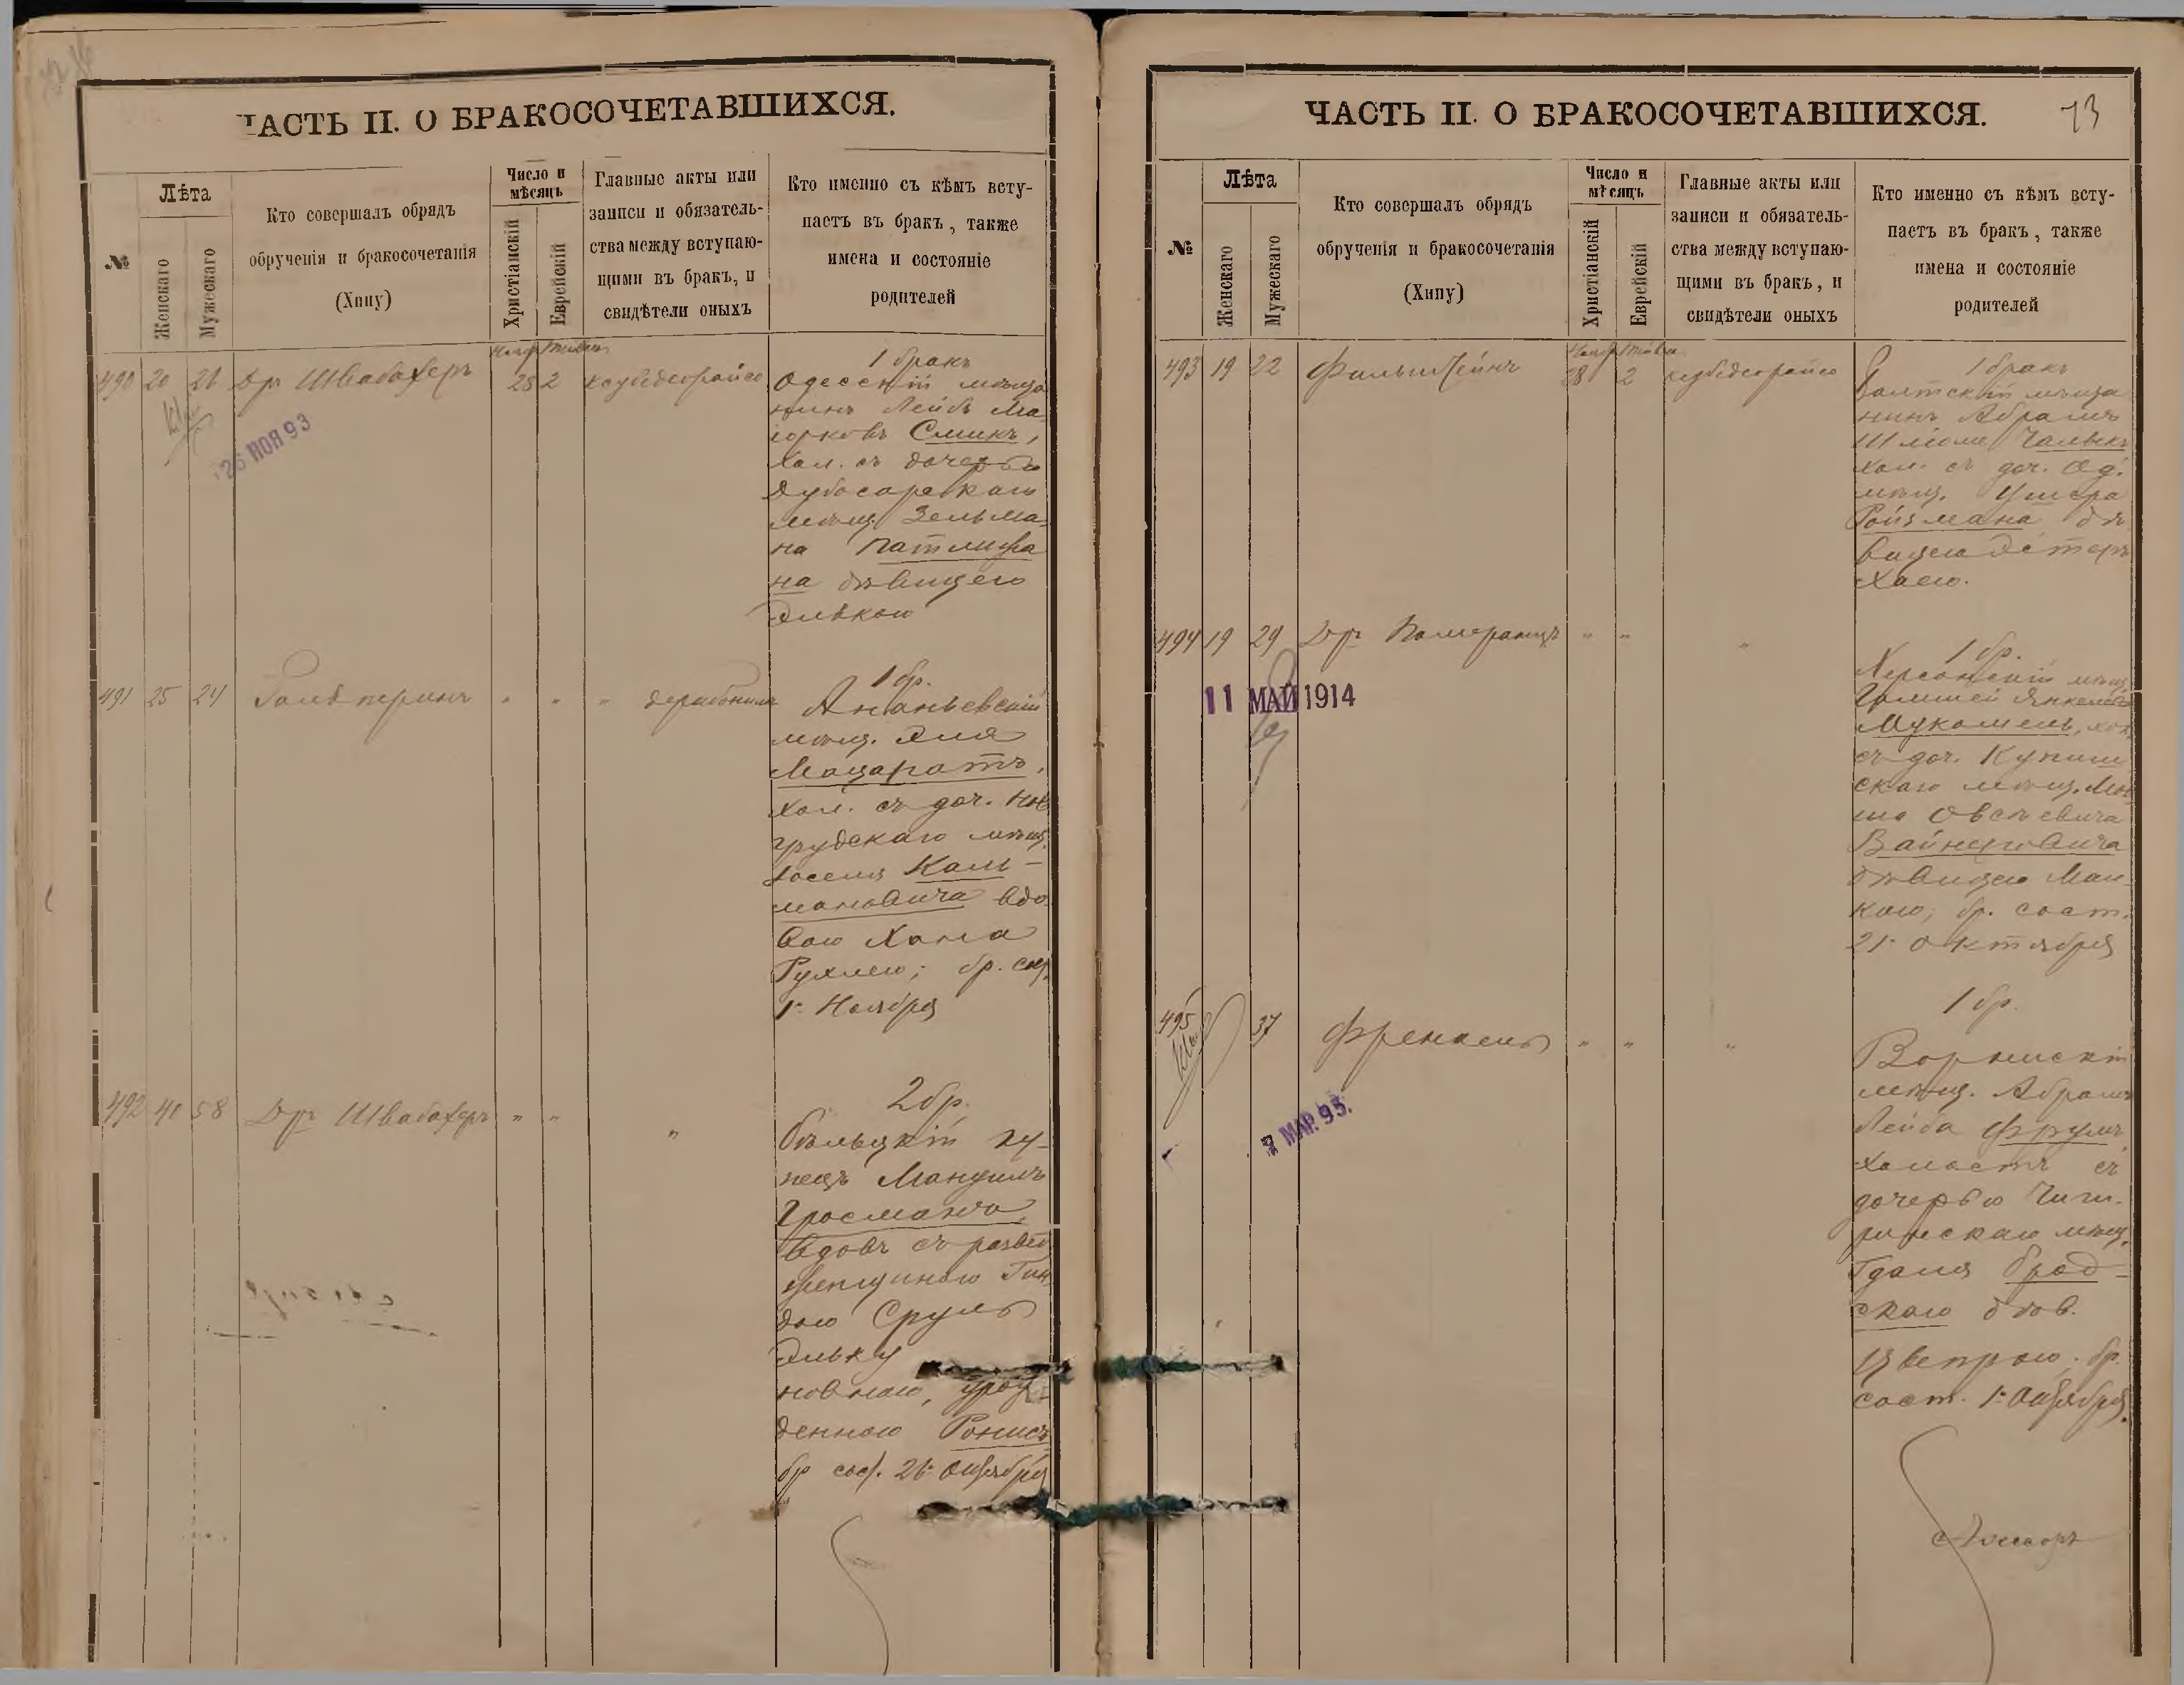 ЧАСТЬ II. О БРАКОСОЧЕТАВШИХСЯ.
№
Лѣта
Женскаго
Мужескаго
Кто совершалъ обрядъ
обрученія и бракосочетанія
(Хипу)
Число и
мѣсяцъ
Христіанскій
Еврейскій
Главные акты или
записи и обязатель-
ства между вступаю-
щими въ бракъ, и
свидѣтели оныхъ
Кто именно съ кѣмъ всту-
паетъ въ бракъ, также
имена и состояніе
родителей
490 20 21 Др. Швабахеръ 28 2
25 НОЯ 93
1 бракъ
Одесскій мѣща
нинъ Лейбъ Ма
іорковъ Смикъ,
хол. съ дочерью
Дубосарскаго
мѣщ. Зельма-
на Патлижа
на дѣвицею
Элькою
491 25 24 Гальперинъ " " "
1 бр.
Ананьевскій
мѣщ. Эля
Мацаратъ,
хол. съ доч. Нов
грудскаго мѣщ.
Іоселя Каль-
мановича вдо
вою Хана
Рухлею; бр. сост.
1. Ноября
492 40 58 Др. Швабахеръ " " "
2 бр.
Бѣльцкій ку-
пецъ Мандиль
Гросманъ,
вдовъ съ развед
женщиною Гин
дою Сруль
Эльку
новною, урож-
денною Ронисъ
бр. сост. 26 Октября
ЧАСТЬ II. О БРАКОСОЧЕТАВШИХСЯ.
73
№
Лѣта
Женскаго
Мужескаго
Кто совершалъ обрядъ
обрученія и бракосочетанія
(Хипу)
Число и
мѣсяцъ
Христіанскій
Еврейскій
Главные акты или
записи и обязатель-
ства между вступаю-
щими въ бракъ, и
свидѣтели оныхъ
Кто именно съ кѣмъ всту-
паетъ въ бракъ, также
имена и состояніе
родителей
493 19 22 Фильштейнъ 28 2
1 бракъ
Балтскій мѣща
нинъ Абрамъ
Шлёма Чальикъ
хол. съ доч. Од.
мѣщ. Ушера
Ройзмана дѣ
вицею Эстеръ
Хаею.
494 19 29 Др. Померанцъ " " "
11 МАЙ 1914
1 бр.
Херсонскій мѣщ.
Гамшей Янкелев
Мукомель, хол.
съ доч. Купиш
скаго мѣщ. Мов
ша Овсѣевича
Вайнеровича
дѣвицею Ман
кою; бр. сост.
21. Октября
495 37 Френкель " " "
7 МАР. 95.
1 бр.
Ворнискій
мѣщ. Абрамъ
Лейба Фрумъ
холостъ съ
дочерью Чиги-
ринскаго мѣщ.
Гдаля Брод-
скаго дѣв.
Цвепрою; бр.
сост. 1. Октября.